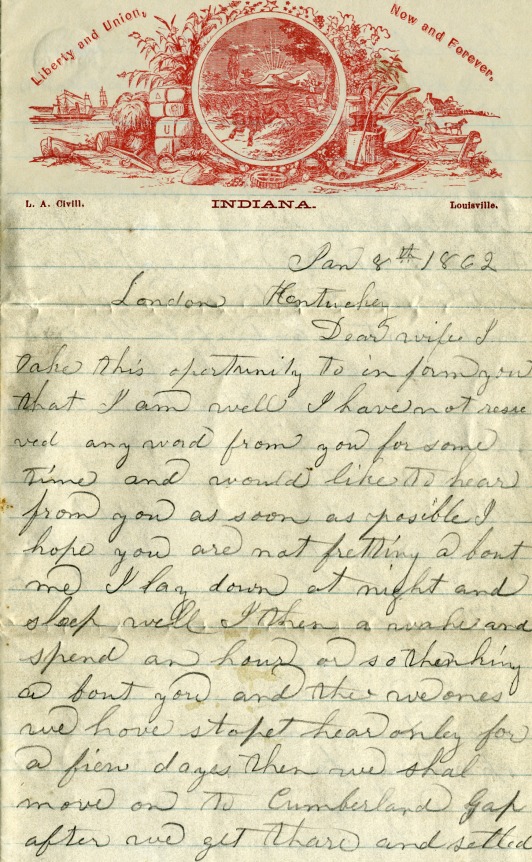 Liberty and Union,
Now and Forever.
L. A. Civill.
INDIANA.
Louisville.
Jan 8th 1862
London Kentuckey
Dear wife I
take this opertunity to in form you
that I am well I have not resie
ved any word from you for some
time and would like to hear
from you as soon as posible I
hope you are not fretting a bout
me I lay down at night and
sleep well I then a wake and
spend an hour or so thenking
a bout you and the we ones
we hove stopet hear onley for
a fiew dayes then we shal
move on to Cumberland Gap
after we get thare and setled